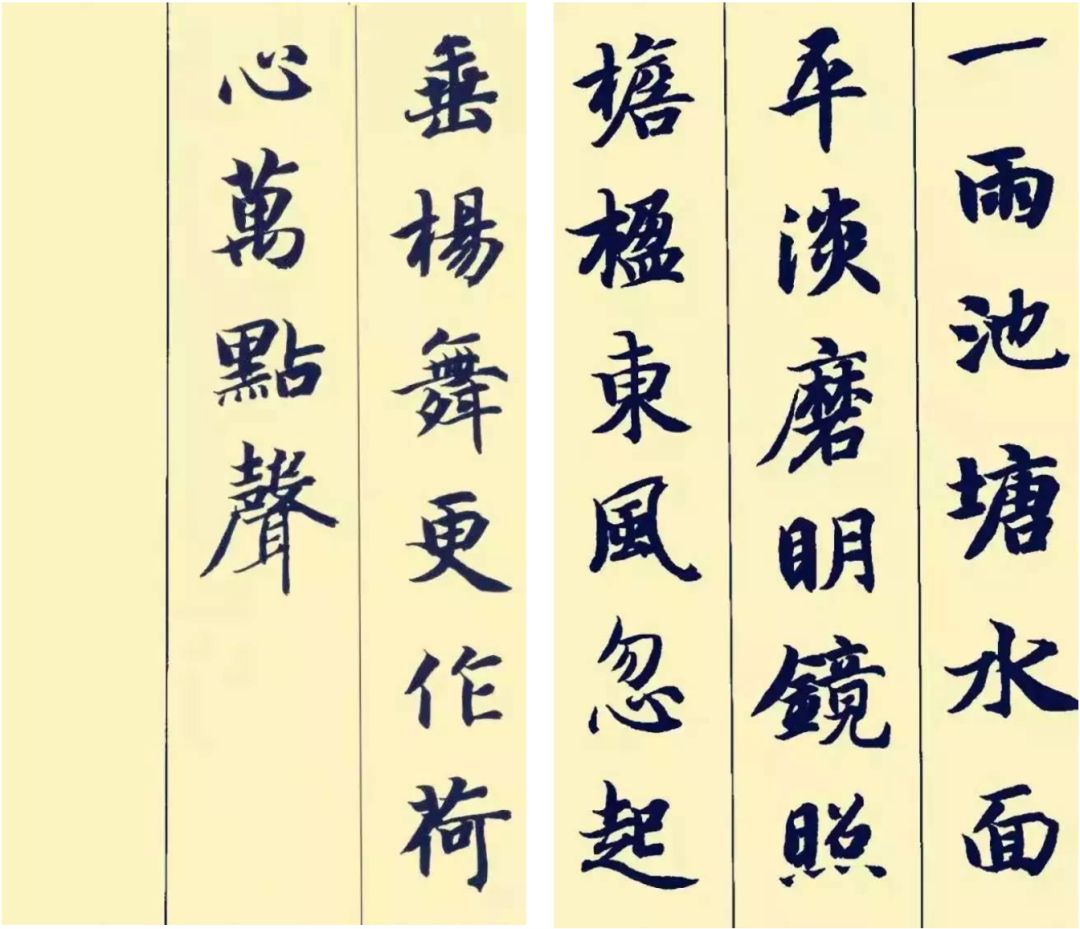 一雨池塘水面
平淡磨明鏡照
檐楹東風忽起
垂楊舞更作荷
心萬點聲